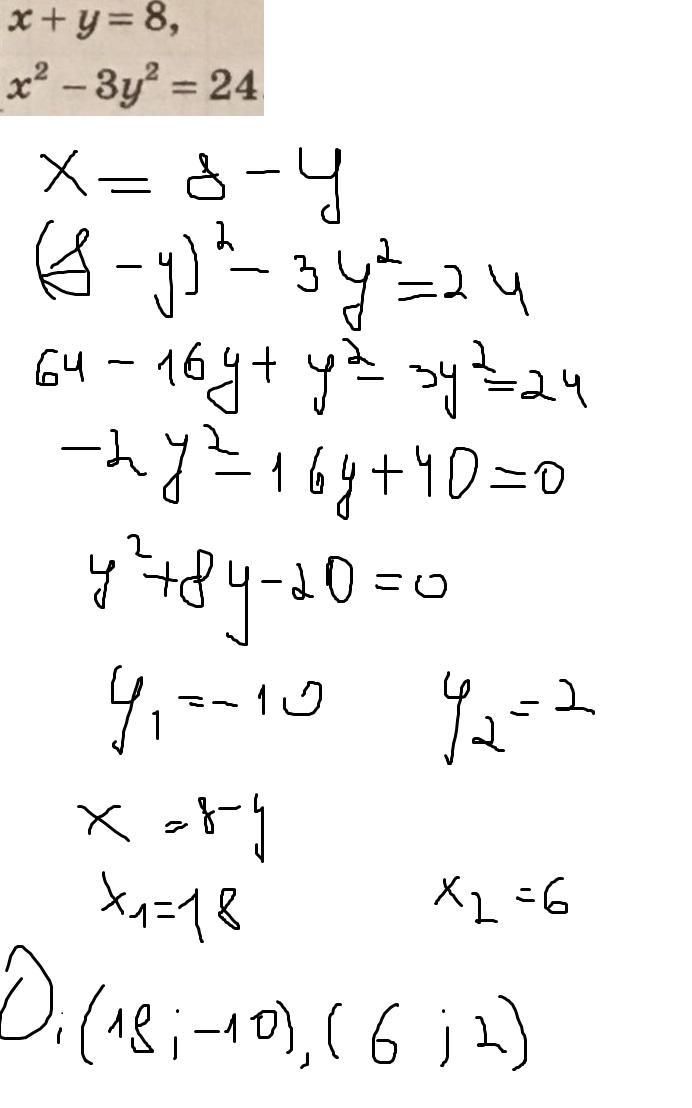 x + y = 8,
x² − 3y² = 24
x = 8 − y
(8 − y)² − 3y² = 24
64 − 16y + y² − 3y² = 24
−2y² − 16y + 40 = 0
y² + 8y − 20 = 0
y₁ = −10 y₂ = 2
x = 8 − y
x₁ = 18 x₂ = 6
O. (18; −10), (6; 2)